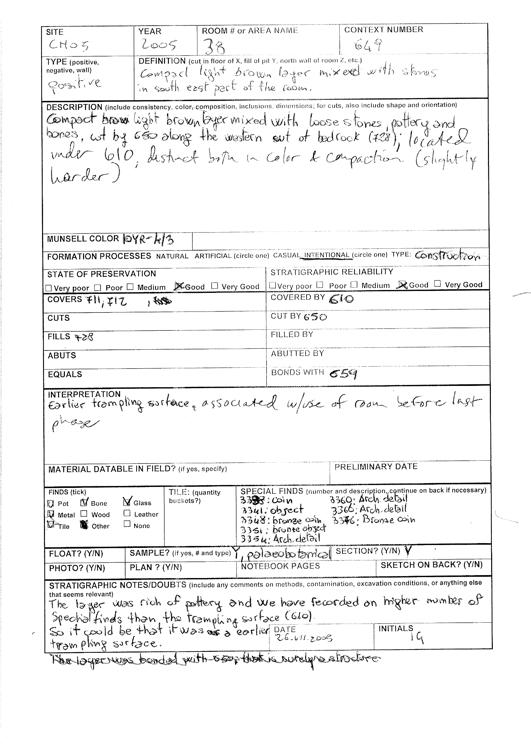 SITE YEAR ROOM # or AREA NAME CONTEXT NUMBER
CH05 2005 38 649
TYPE (positive, negative, wall) DEFINITION (cut in floor of X, fill of pit Y, north wall of room Z, etc.)
positive Compact light brown layer mixed with stones
in south east part of the room.
DESCRIPTION (include consistency, color, composition, inclusions, dimensions; for cuts, also include shape and orientation)
Compact light brown layer mixed with loose stones, pottery and
bones, cut by 650 along the western cut of bedrock (728); located
under 610, distinct both in color & compaction (slightly
harder)
MUNSELL COLOR 10YR-4/3
FORMATION PROCESSES NATURAL ARTIFICIAL (circle one) CASUAL INTENTIONAL (circle one) TYPE: Construction
STATE OF PRESERVATION STRATIGRAPHIC RELIABILITY
Very poor Poor Medium Good Very Good Very poor Poor Medium Good Very Good
COVERS 711, 712 COVERED BY 610
CUTS CUT BY 650
FILLS 728 FILLED BY
ABUTS ABUTTED BY
EQUALS BONDS WITH 659
INTERPRETATION
Earlier trampling surface, associated w/use of room before last
phase
MATERIAL DATABLE IN FIELD? (if yes, specify) PRELIMINARY DATE
FINDS (tick) TILE: (quantity buckets?) SPECIAL FINDS (number and description, continue on back if necessary)
Pot Bone Glass : coin 3360: Arch. detail
Metal Wood Leather 3341: object 3365: Arch. detail
Tile Other None 3348: bronze coin 3376: Bronze coin
3351: bronze object
3354: Arch. detail
FLOAT? (Y/N) SAMPLE? (if yes, # and type) Y, palaeobotanical SECTION? (Y/N) Y
PHOTO? (Y/N) PLAN? (Y/N) NOTEBOOK PAGES SKETCH ON BACK? (Y/N)
STRATIGRAPHIC NOTES/DOUBTS (include any comments on methods, contamination, excavation conditions, or anything else
that seems relevant)
The layer was rich of pottery and we have recorded an higher number of
Special finds than the trampling surface (610).
So it could be that it was a earlier DATE INITIALS
trampling surface. 2005
The layer was bonded with that is surely structure